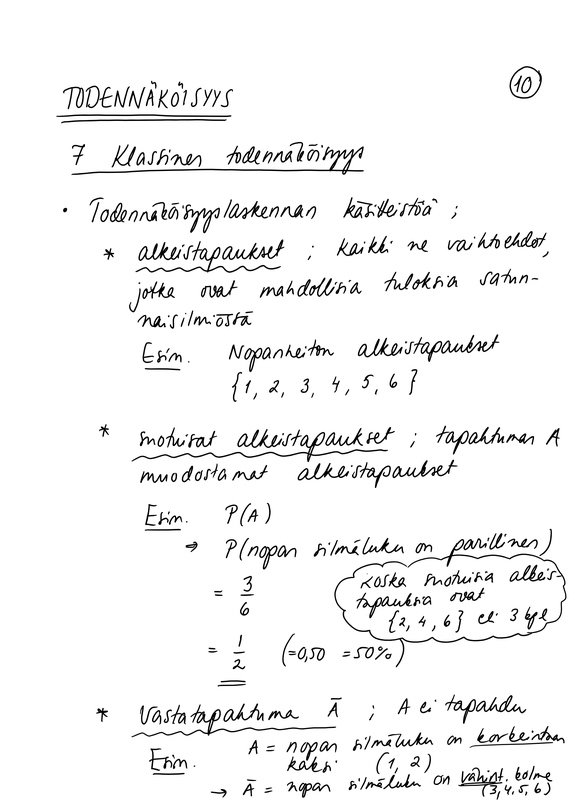 TODENNÄKÖISYYS
10
7 Klassinen todennäköisyys
• Todennäköisyyslaskennan käsitteistöä ;
* alkeistapaukset ; kaikki ne vaihtoehdot,
jotka ovat mahdollisia tuloksia satun-
naisilmiöstä
Esim. Nopanheiton alkeistapaukset
{1, 2, 3, 4, 5, 6}
* suotuisat alkeistapaukset ; tapahtuman A
muodostamat alkeistapaukset
Esim. P(A)
⇒ P(nopan silmäluku on parillinen)
= 3/6
koska suotuisia alkeis-
tapauksia ovat
{2, 4, 6} eli 3 kpl
= 1/2 (=0,50 =50%)
* Vastatapahtuma Ā ; A ei tapahdu
Esim. A = nopan silmäluku on korkeintaan
kaksi (1, 2)
→ Ā = nopan silmäluku on vähint. kolme
(3, 4, 5, 6)